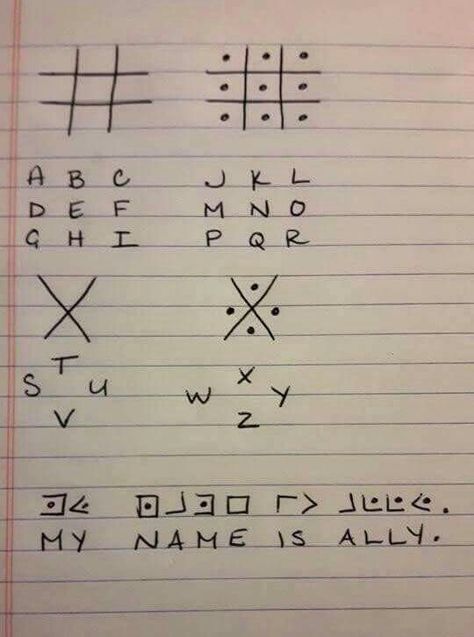 A B C J K L
D E F M N O
G H I P Q R
T X
S U W Y
V Z
MY NAME IS ALLY.